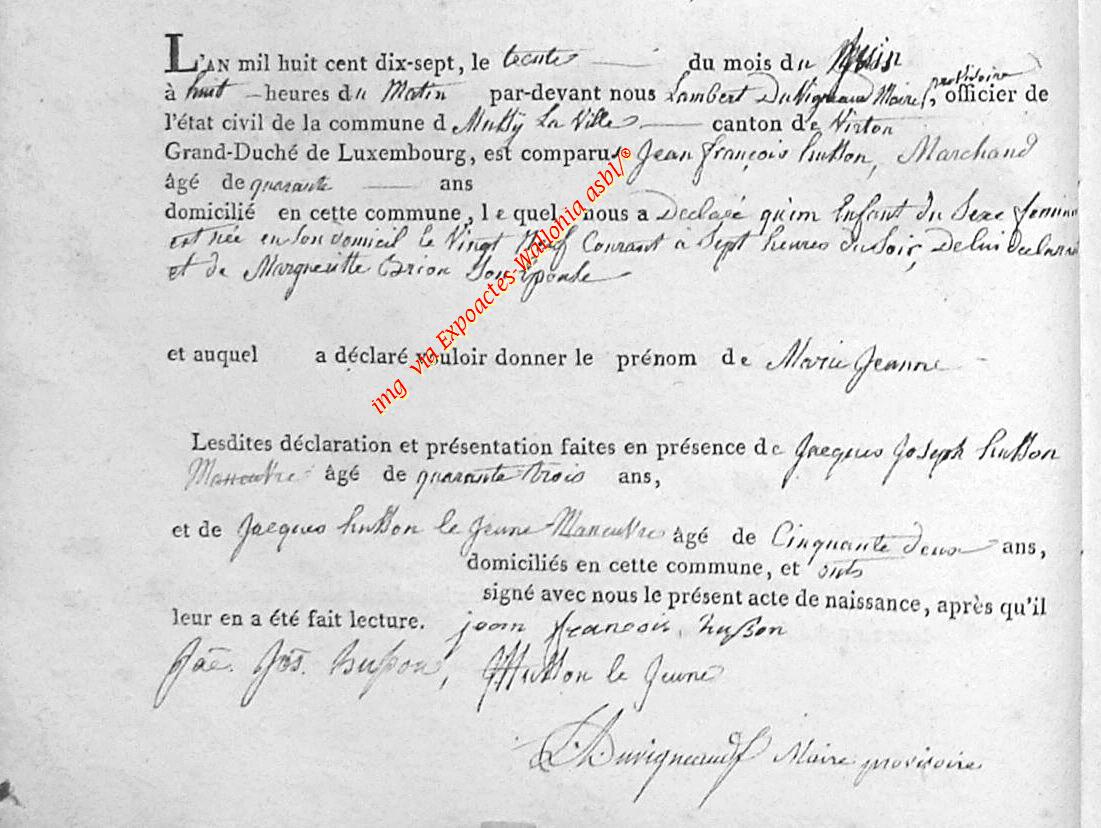 L'AN mil huit cent dix-sept, le trente du mois du Juin
à huit heures du Matin par-devant nous Lambert Duvigneaud Maire provisoire, officier de
l'état civil de la commune d Mussy La Ville canton de Virton
Grand-Duché de Luxembourg, est comparus Jean françois husson, Marchand
âgé de quarante ans
domicilié en cette commune, le quel nous a Declaré qu'un Enfant du Sexe feminin
est née en son domicil le Vingt Neuf Courant à Sept heures du Soir, De lui declarant
et de Margueritte Brion Son Epouse
et auquel a déclaré vouloir donner le prénom de Marie Jeanne
Lesdites déclaration et présentation faites en présence de Jacques Joseph husson
Maneuvre âgé de quarante trois ans,
et de Jacques husson le Jeune Maneuvre âgé de Cinquante deux ans,
domiciliés en cette commune, et onts
signé avec nous le présent acte de naissance, après qu'il
leur en a été fait lecture. jean francois husson
Jac. Jos. husson, JHusson le Jeune
L Duvigneaud Maire provisoire
img via Expoactes-Wallonia asbl/®